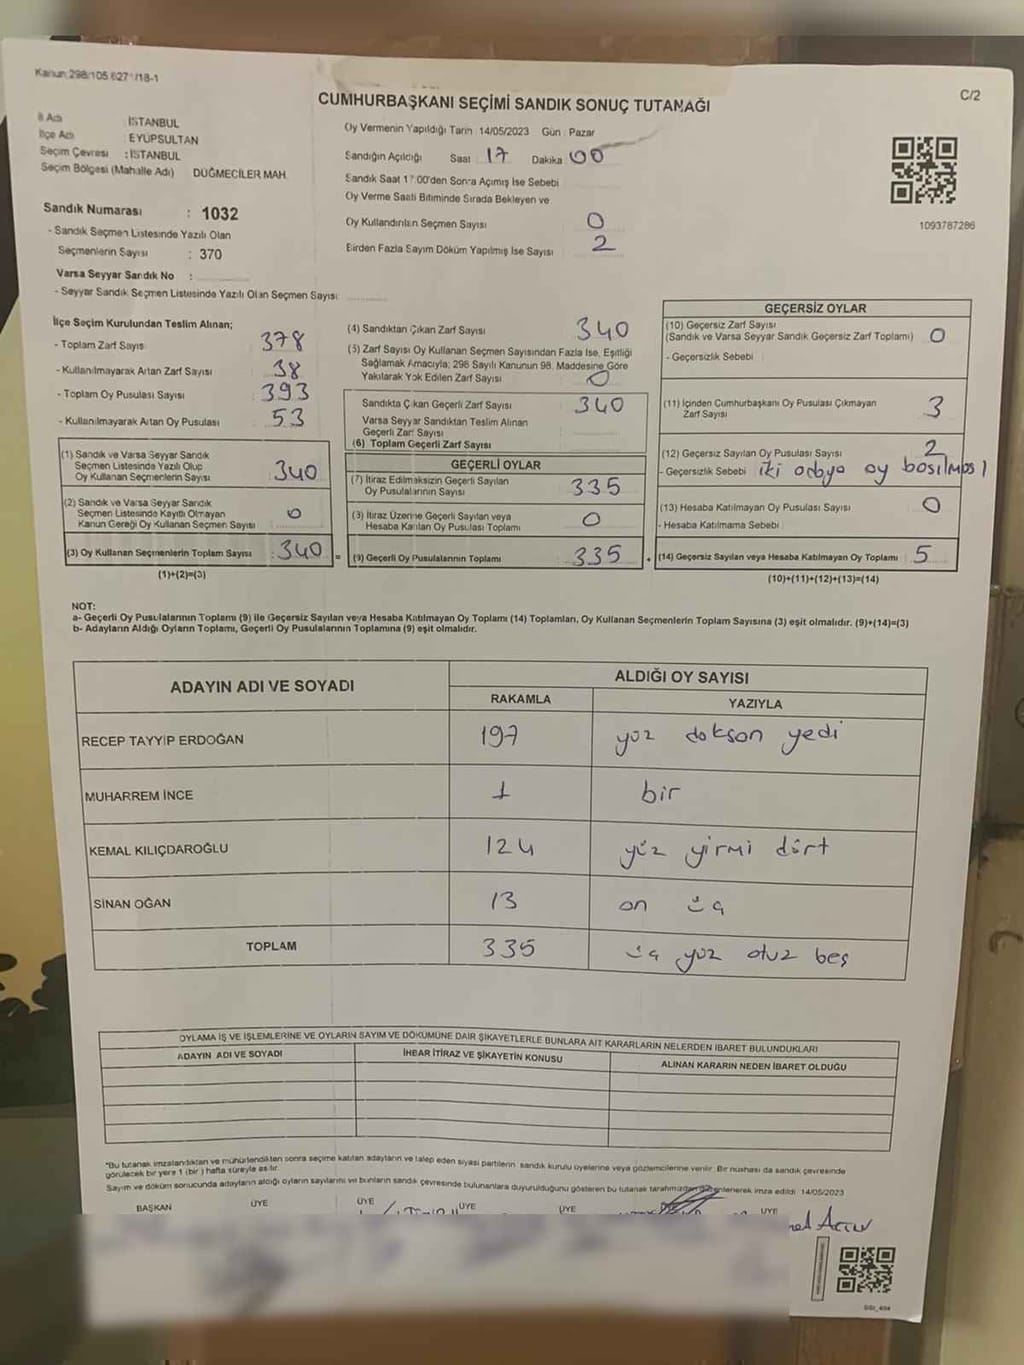 Kanun:298/105 627/18-1
C/2
CUMHURBAŞKANI SEÇİMİ SANDIK SONUÇ TUTANAĞI
İl Adı : İSTANBUL
İlçe Adı : EYÜPSULTAN
Seçim Çevresi : İSTANBUL
Seçim Bölgesi (Mahalle Adı) DÜĞMECİLER MAH.
Sandık Numarası : 1032
- Sandık Seçmen Listesinde Yazılı Olan
Seçmenlerin Sayısı : 370
Varsa Seyyar Sandık No :
- Seyyar Sandık Seçmen Listesinde Yazılı Olan Seçmen Sayısı:
Oy Vermenin Yapıldığı Tarih 14/05/2023 Gün : Pazar
Sandığın Açıldığı Saat 17 Dakika 00
Sandık Saat 17:00'den Sonra Açımış İse Sebebi
Oy Verme Saati Bitiminde Sırada Bekleyen ve
Oy Kullandırılan Seçmen Sayısı 0
Birden Fazla Sayım Döküm Yapılmış İse Sayısı 2
1093787286
İlçe Seçim Kurulundan Teslim Alınan;
- Toplam Zarf Sayısı 378
- Kullanılmayarak Artan Zarf Sayısı 38
- Toplam Oy Pusulası Sayısı 393
- Kullanılmayarak Artan Oy Pusulası 53
(1) Sandık ve Varsa Seyyar Sandık
Seçmen Listesinde Yazılı Olup
Oy Kullanan Seçmenlerin Sayısı 340
(2) Sandık ve Varsa Seyyar Sandık
Seçmen Listesinde Kayıtlı Olmayan
Kanun Gereği Oy Kullanan Seçmen Sayısı 0
(3) Oy Kullanan Seçmenlerin Toplam Sayısı 340 =
(1)+(2)=(3)
(4) Sandıktan Çıkan Zarf Sayısı 340
(5) Zarf Sayısı Oy Kullanan Seçmen Sayısından Fazla İse, Eşitliği
Sağlamak Amacıyla; 298 Sayılı Kanunun 98. Maddesine Göre
Yakılarak Yok Edilen Zarf Sayısı 0
Sandıkta Çıkan Geçerli Zarf Sayısı 340
Varsa Seyyar Sandıktan Teslim Alınan
Geçerli Zarf Sayısı
(6) Toplam Geçerli Zarf Sayısı
GEÇERLİ OYLAR
(7) İtiraz Edilmeksizin Geçerli Sayılan
Oy Pusulalarının Sayısı 335
(8) İtiraz Üzerine Geçerli Sayılan veya
Hesaba Katılan Oy Pusulası Toplamı 0
(9) Geçerli Oy Pusulalarının Toplamı 335 +
GEÇERSİZ OYLAR
(10) Geçersiz Zarf Sayısı
(Sandık ve Varsa Seyyar Sandık Geçersiz Zarf Toplamı) 0
- Geçersizlik Sebebi
(11) İçinden Cumhurbaşkanı Oy Pusulası Çıkmayan
Zarf Sayısı 3
(12) Geçersiz Sayılan Oy Pusulası Sayısı 2
- Geçersizlik Sebebi iki adaya oy basılması
(13) Hesaba Katılmayan Oy Pusulası Sayısı 0
- Hesaba Katılmama Sebebi
(14) Geçersiz Sayılan veya Hesaba Katılmayan Oy Toplamı 5
(10)+(11)+(12)+(13)=(14)
NOT:
a- Geçerli Oy Pusulalarının Toplamı (9) ile Geçersiz Sayılan veya Hesaba Katılmayan Oy Toplamı (14) Toplamları, Oy Kullanan Seçmenlerin Toplam Sayısına (3) eşit olmalıdır. (9)+(14)=(3)
b- Adayların Aldığı Oyların Toplamı, Geçerli Oy Pusulalarının Toplamına (9) eşit olmalıdır.
ADAYIN ADI VE SOYADI
ALDIĞI OY SAYISI
RAKAMLA YAZIYLA
RECEP TAYYİP ERDOĞAN 197 yüz doksan yedi
MUHARREM İNCE 1 bir
KEMAL KILIÇDAROĞLU 124 yüz yirmi dört
SİNAN OĞAN 13 on üç
TOPLAM 335 üç yüz otuz beş
OYLAMA İŞ VE İŞLEMLERİNE VE OYLARIN SAYIM VE DÖKÜMÜNE DAİR ŞİKAYETLERLE BUNLARA AİT KARARLARIN NELERDEN İBARET BULUNDUKLARI
ADAYIN ADI VE SOYADI İHBAR İTİRAZ VE ŞİKAYETİN KONUSU ALINAN KARARIN NEDEN İBARET OLDUĞU
*Bu tutanak imzalandıktan ve mühürlendikten sonra seçime katılan adayların ve talep eden siyasi partilerin sandık kurulu üyelerine veya gözlemcilerine verilir. Bir nüshası da sandık çevresinde
görülecek bir yere 1 (bir) hafta süreyle asılır.
Sayım ve döküm sonucunda adayların aldığı oyların sayılarını ve bunların sandık çevresinde bulunanlara duyurulduğunu gösteren bu tutanak tarafımızdan düzenlenerek imza edildi. 14/05/2023
BAŞKAN ÜYE ÜYE ÜYE ÜYE ÜYE